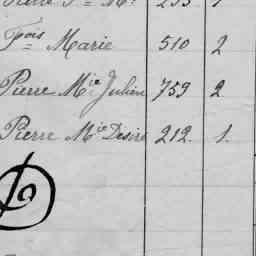 Fois Marie 510 2
Pierre Mie Julien 759 2
Pierre Mie Desiré 212. 1.